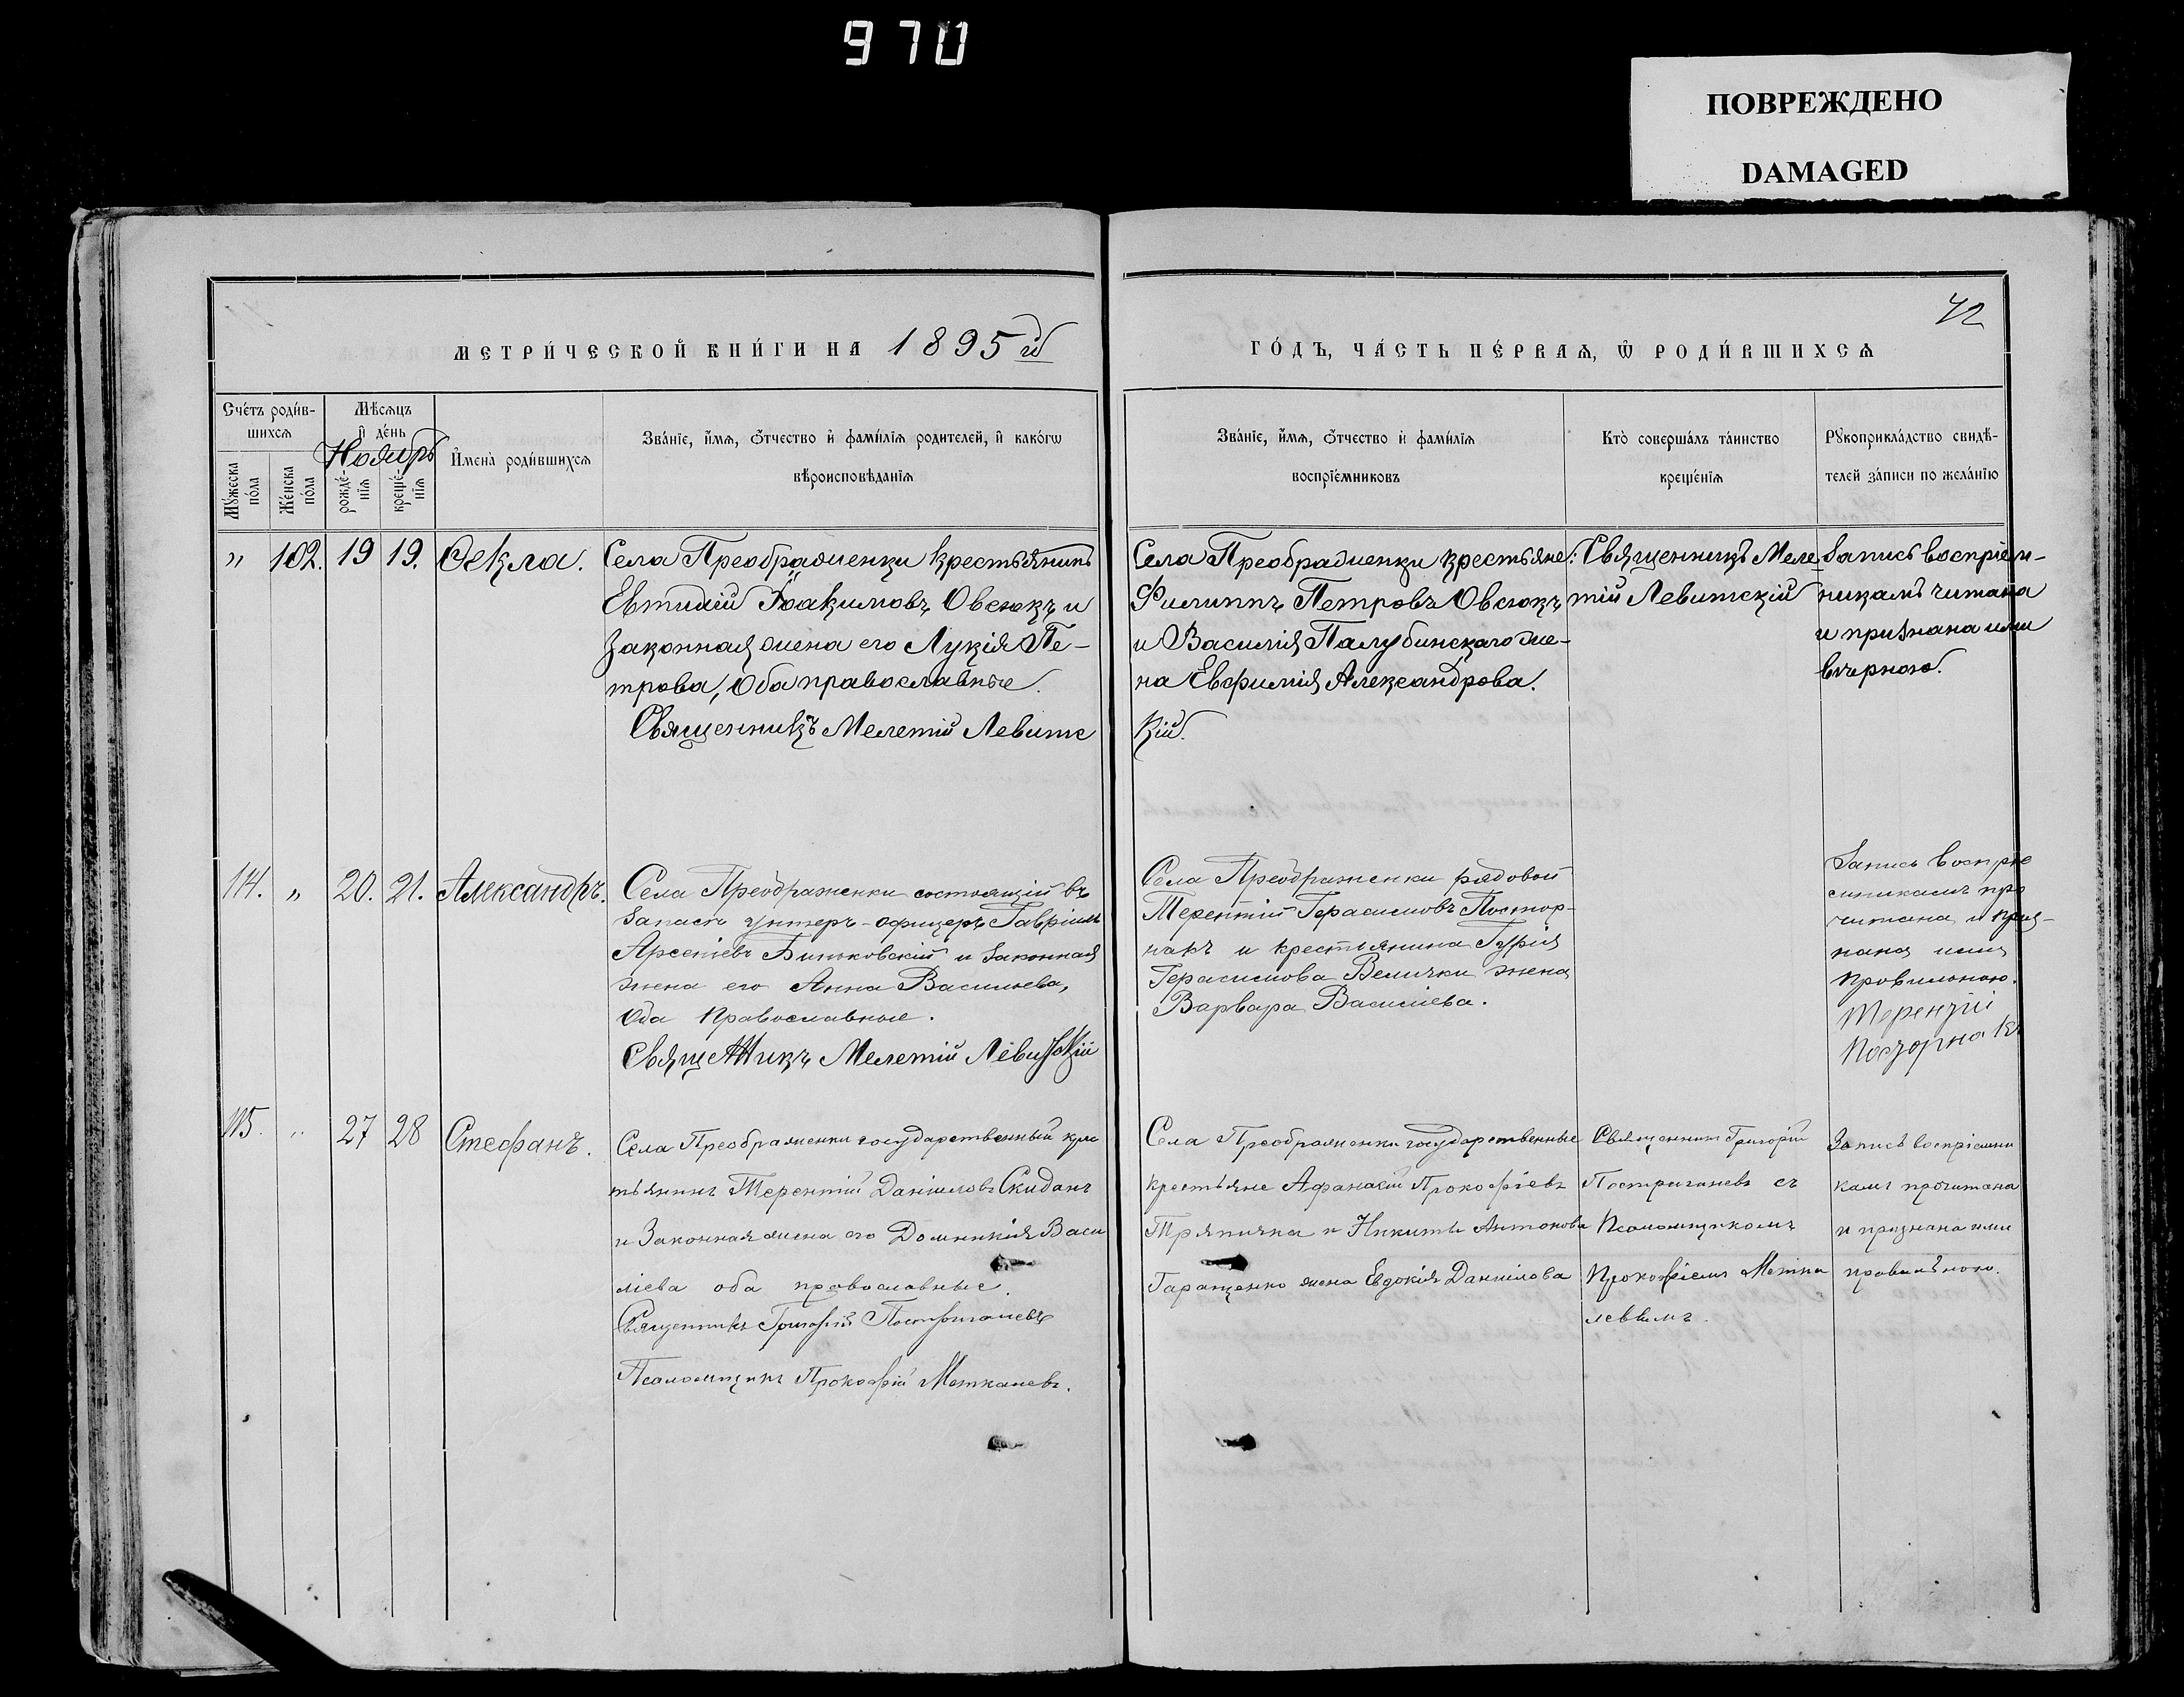 970
ПОВРЕЖДЕНО
DAMAGED
42
МЕТРИ́ЧЕСКОЙ КНИ́ГИ НА 1895 й
ГО́ДЪ, ЧА́СТЬ ПЕ́РВАЯ, Ѿ РОДИ́ВШИХСЯ
Сче́тъ роди́в-
шихся
Му́жеска по́ла
Же́нска по́ла
Мѣсяцъ
и҆ де́нь
Ноябрь
рожде́-
нїя
креще́-
нїя
И҆мена̀ роди́вшихся
Зва́нїе, и҆́мя, ѻ҆́тчество и҆ фами́лїя родителей, и҆ како́гѡ
вѣроисповѣданїя
Зва́нїе, и҆́мя, ѻ҆́тчество и҆ фами́лїя
воспрїе́мниковъ
Кто̀ соверша́лъ та́инство
креще́нїя
Рꙋкоприкла́дство свидѣ-
телей за́писи по жела́нїю
" 102. 19 19. Ѳекла.
Села Преображенки крестьянинъ
Евтихій Іоакимовъ Овсюкъ и
законная жена его Лукія Пе-
трова, Оба православные.
Священникъ Мелетій Левитс
Села Преображенки крестьяне:
Филиппъ Петровъ Овсюкъ
и Василія Палубинскаго же-
на Евфимія Александрова.
кій.
Священникъ Меле-
тій Левитскій
Запись воспріем-
никамъ читана
и признана ими
вѣрною.
114. " 20. 21. Александръ.
Села Преображенки состоящій въ
запасѣ унтеръ-офицеръ Гавріилъ
Арсеніевъ Биньковскій и законная
жена его Анна Васильева,
Оба Православные.
Священникъ Мелетій Левитскій
Села Преображенки рядовой
Терентій Герасимовъ Постор-
накъ и крестьянина Гурія
Герасимова Велички жена
Варвара Василіева.
Запись воспріе
емникамъ про
читана и приз-
нана ими
правильною.
115. " 27 28 Стефанъ.
Села Преображенки государственный крес
тьянинъ Терентій Даніиловъ Скиданъ
и Законная жена его Домникія Васи
ліева оба православные.
Священникъ Григорій Постригачевъ
Псаломщикъ Прокофій Маткалевъ.
Села Преображенки государственные
крестьяне Афанасій Прокофіевъ
Тряпичка и Никиты Антонова
Гаращенко жена Евдокія Даніилова
Священникъ Григорій
Постригачевъ съ
Псаломщикомъ
Прокофіемъ Матка
левымъ.
Запись воспріемни
камъ прочитана
и признана ими
правильною.